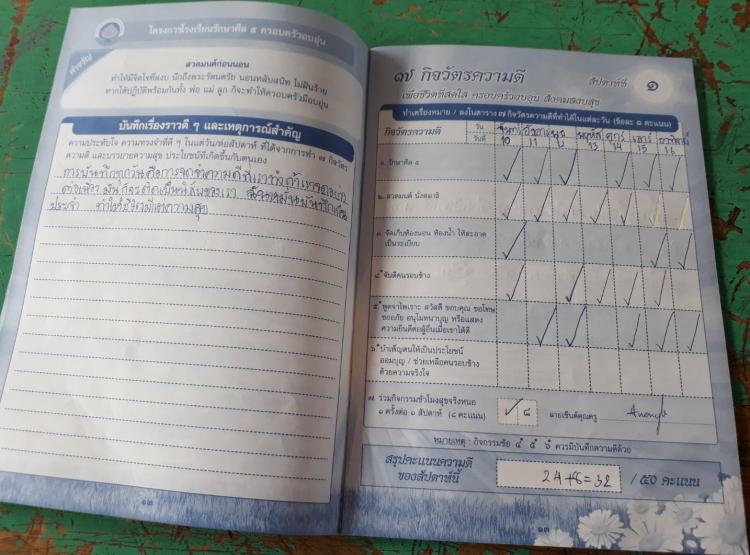 โครงการโรงเรียนรักษาศีล ๕ ครอบครัวอบอุ่น
คำขวัญ
สวดมนต์ก่อนนอน
ทำให้มีจิตใจที่สงบ นึกถึงพระรัตนตรัย นอนหลับสนิท ไม่ฝันร้าย
หากได้ปฏิบัติพร้อมกันทั้ง พ่อ แม่ ลูก ก็จะทำให้ครอบครัวมีอบอุ่น
บันทึกเรื่องราวดี ๆ และเหตุการณ์สำคัญ
ความประทับใจ ความทรงจำที่ดี ๆ ในแต่วัน/ต่อสัปดาห์ ที่ได้จากการทำ ๗ กิจวัตร
ความดี และบรรยายความสุข ประโยชน์ที่เกิดขึ้นกับตนเอง
การบันทึกทุกวันคือการจดจำความดีที่เราทำ
มันก็จะติดเป็นนิสัยของเรา
ประจำ ทำให้ชีวิตมีแต่ความสุข
๑๒
๗ กิจวัตรความดี
สัปดาห์ที่ ๑
เพื่อชีวิตที่สดใส ครอบครัวอบอุ่น สังคมสงบสุข
ทำเครื่องหมาย / ลงในตาราง ๗ กิจวัตรความดีที่ทำได้ในแต่ละวัน (ข้อละ ๑ คะแนน)
กิจวัตรความดี วัน จันทร์ อังคาร พุธ พฤหัส ศุกร์ เสาร์ อาทิตย์
วันที่ 10 11 12 13 14 15 16
๑. รักษาศีล ๕
๒. สวดมนต์ นั่งสมาธิ
๓. จัดเก็บห้องนอน ห้องน้ำ ให้สะอาด
เป็นระเบียบ
๔. จับดีคนรอบข้าง
๕. พูดจาไพเราะ สวัสดี ขอบคุณ ขอโทษ
ขออภัย อนุโมทนาบุญ หรือแสดง
ความยินดีต่อผู้อื่นเมื่อเขาได้ดี
๖. บำเพ็ญตนให้เป็นประโยชน์
ออมบุญ / ช่วยเหลือคนรอบข้าง
ด้วยความจริงใจ
๗. ร่วมกิจกรรมชั่วโมงสุขจริงหนอ
๑ ครั้งต่อ ๑ สัปดาห์ (๘ คะแนน) ✓ ๘ ลายเซ็นต์คุณครู
หมายเหตุ : กิจกรรมข้อ ๔ ๕ ๖ ควรมีบันทึกความดีด้วย
สรุปคะแนนความดี
ของสัปดาห์นี้ 24+8=32 / ๕๐ คะแนน
๑๓